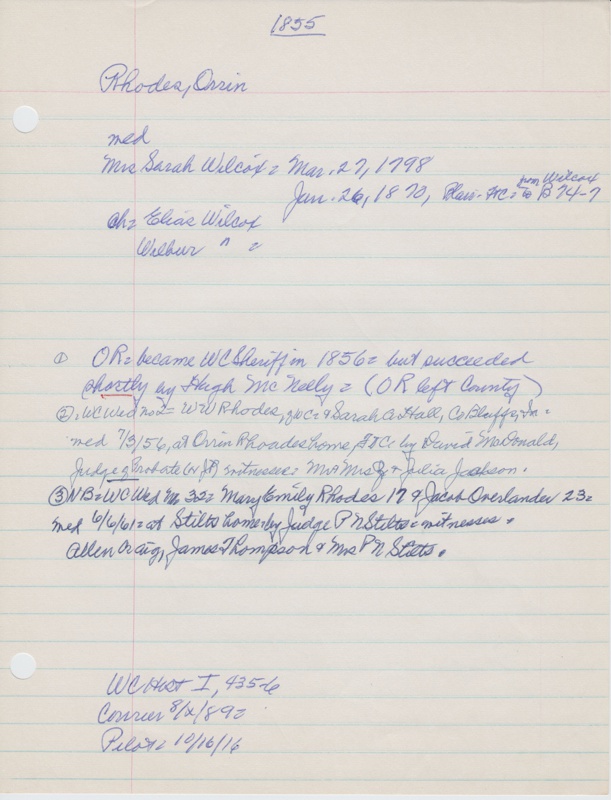 1855
Rhodes, Orrin
med
Mrs Sarah Wilcox = Mar. 27, 1798
from Wilcox
Jan. 26, 1870, Blair. HC = B 74-7
ch = Elias Wilcox
Wilbur " =
① OR = became WC Sheriff in 1856 = but succeeded
shortly by Hugh McNeely = (OR left County)
②. WC Wed no 2 = WW Rhodes, & Sarah A. Hall, Co Bluffs, Ia =
med 7/3/56, at Orrin Rhoades home, by David McDonald,
Judge of Probate (or JP) witnesses = Mr & Mrs & Julia Jackson.
③ NB = WC Wed No 32 = Mary Emily Rhodes 17 & Jacob Overlander 23 =
med 6/6/61 = at Stilts home = by Judge P N Stilts = witnesses =
Allen Craig, James Thompson & Mrs P N Stilts.
WC Hist I, 435-6
Courier 8/2/89 =
Pilot = 10/16/16